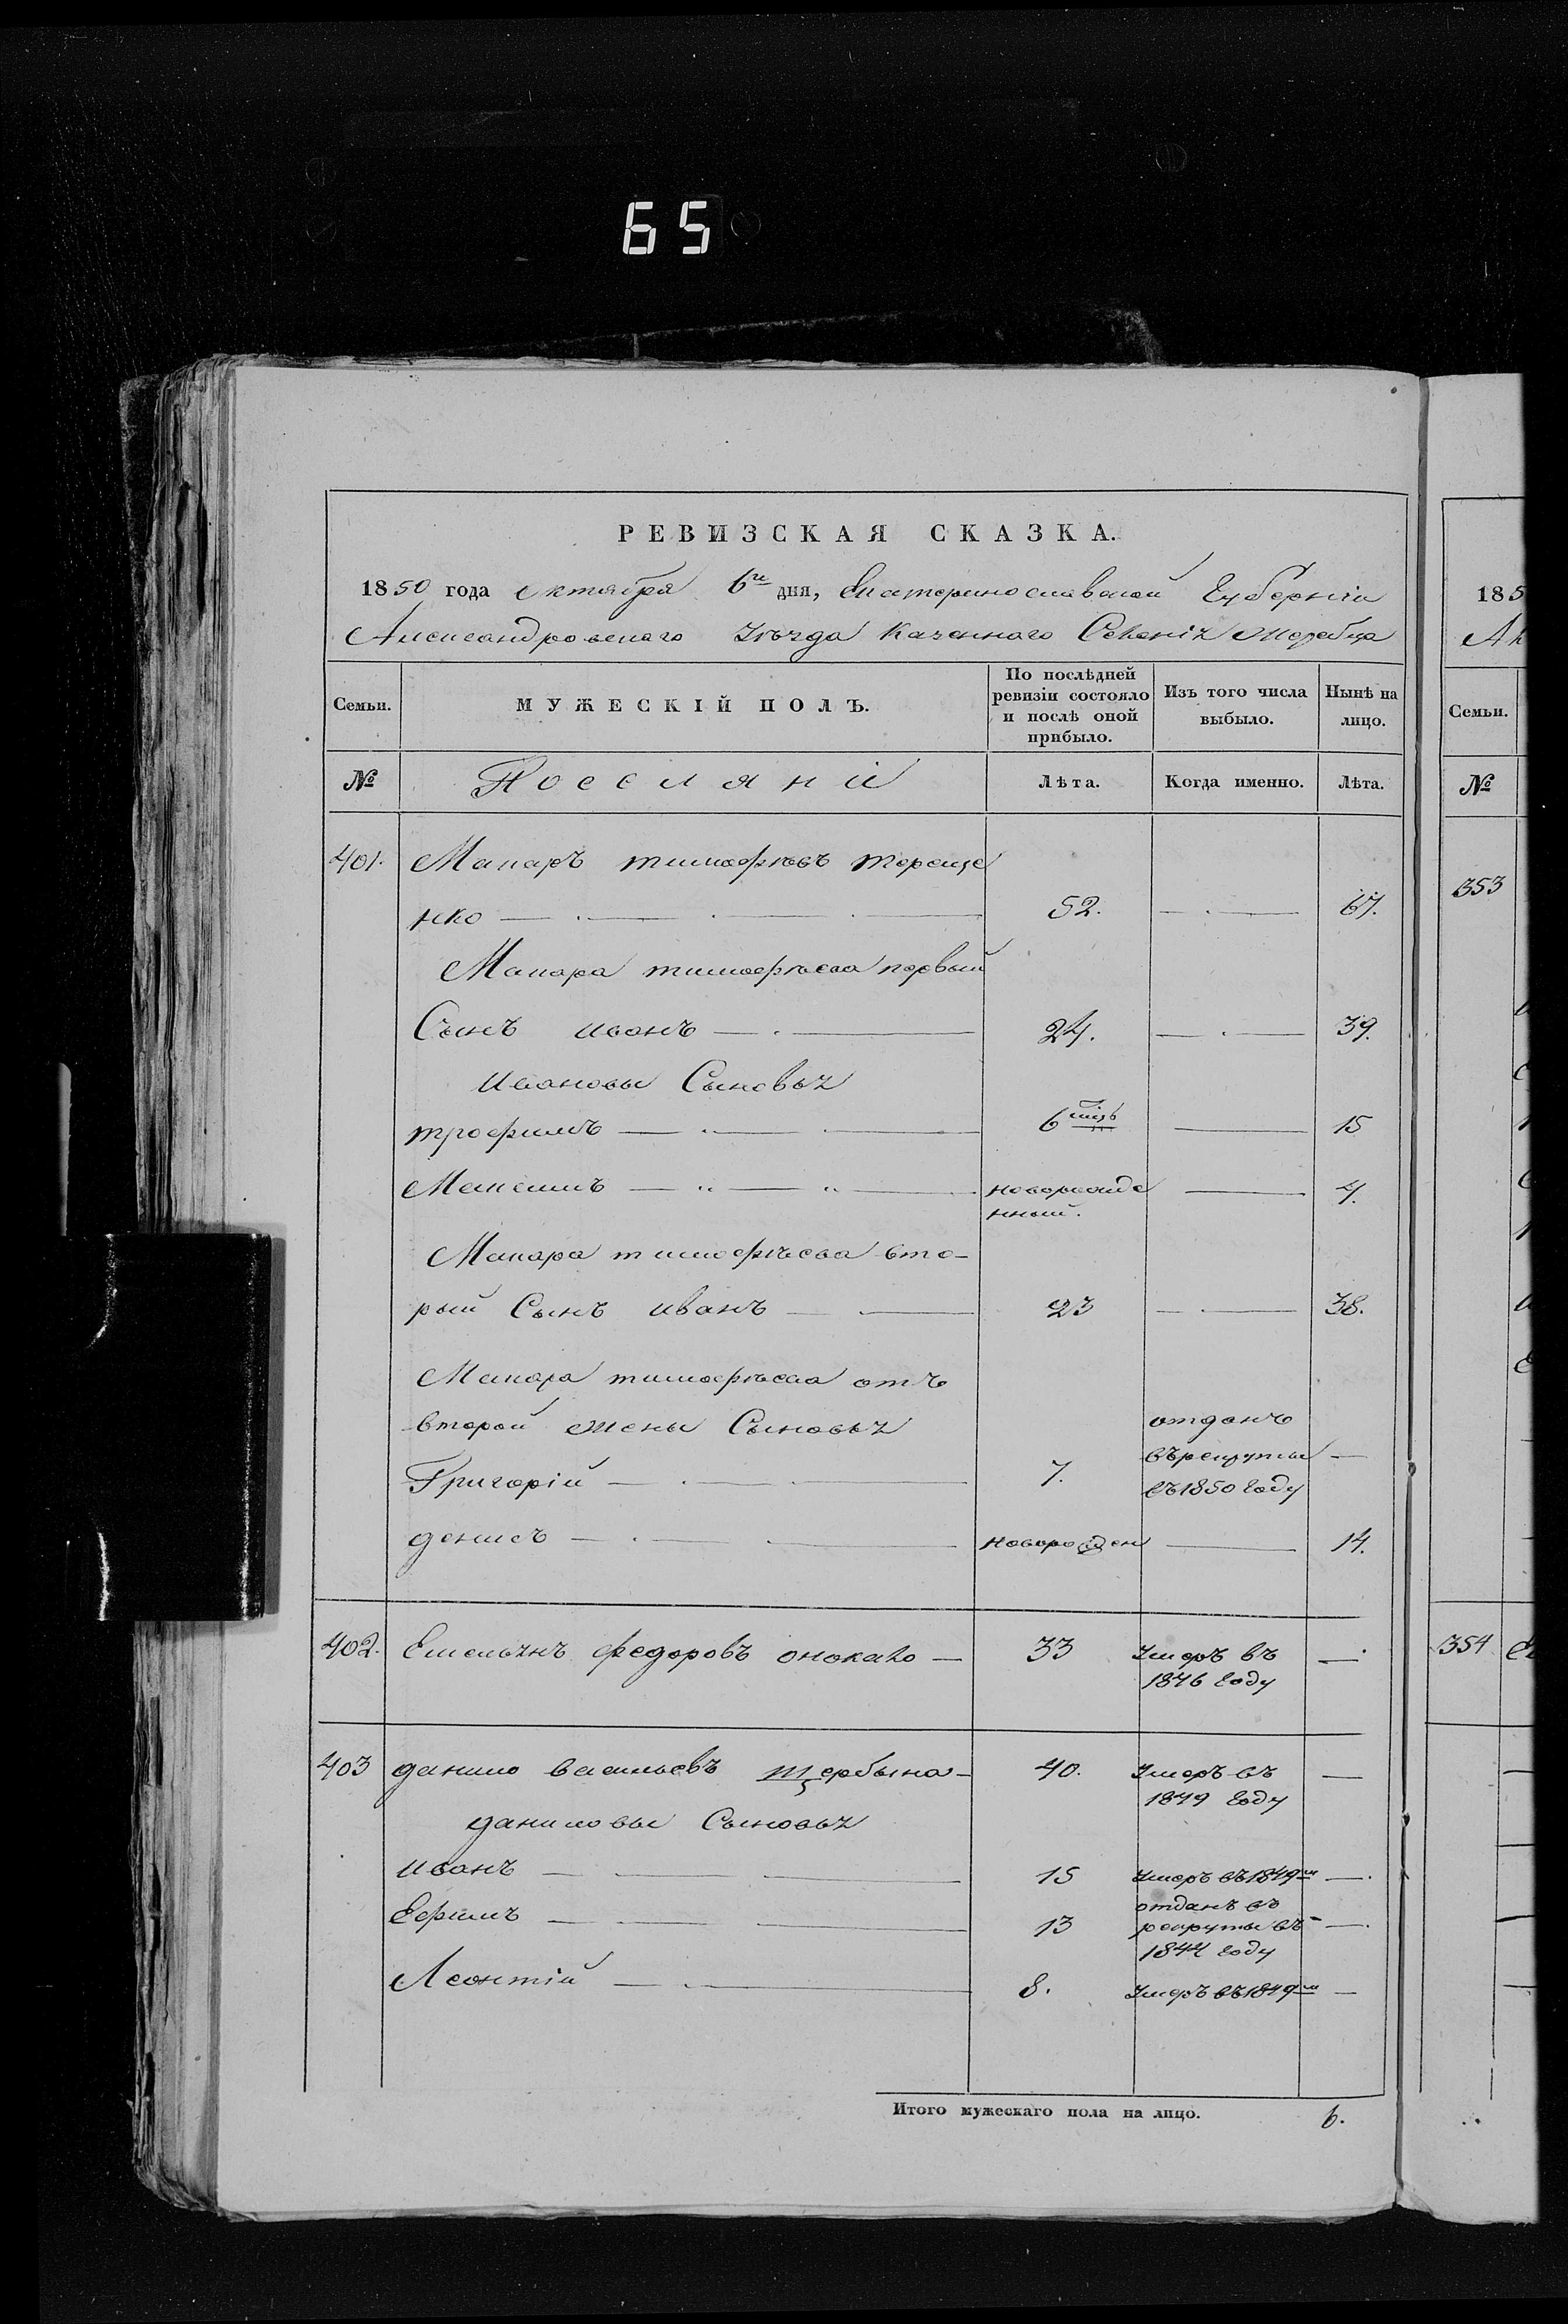 65
РЕВИЗСКАЯ СКАЗКА.
1850 года октября 6го дня, Екатеринославской Губерніи
Александровскаго Уѣзда Казеннаго Селенія Жеребца
Семьи.
МУЖЕСКІЙ ПОЛЪ.
По послѣдней ревизіи состояло и послѣ оной прибыло.
Изъ того числа выбыло.
Нынѣ на лицо.
№
Лѣта.
Когда именно.
Лѣта.
401. Макаръ тимофѣевъ тереще
нко 52. 67.
Макара тимофѣева первый
Сынъ иванъ 24. 39.
ивановы Сыновья
трофимъ 6 мцъ 15
Максимъ новорожде 4.
нный.
Макара тимофѣева вто-
рый Сынъ иванъ 23 38.
Макара тимофѣева отъ
второй жены Сыновья
отданъ
Григорій 7. въ рекруты
въ 1850 Году
денисъ новорожден 14.
402. Емельянъ федоровъ 33 Умеръ въ
1846 Году
403 данило васильевъ щербына 40. Умеръ въ
1849 Году
даниловы Сыновья
иванъ 15 Умеръ въ 1849м
отданъ въ
Ефимъ 13 рекруты въ
1844 Году
Леонтій 8. Умеръ въ 1849м
Итого мужескаго пола на лицо. 6.
185
Семьи.
№
353
354